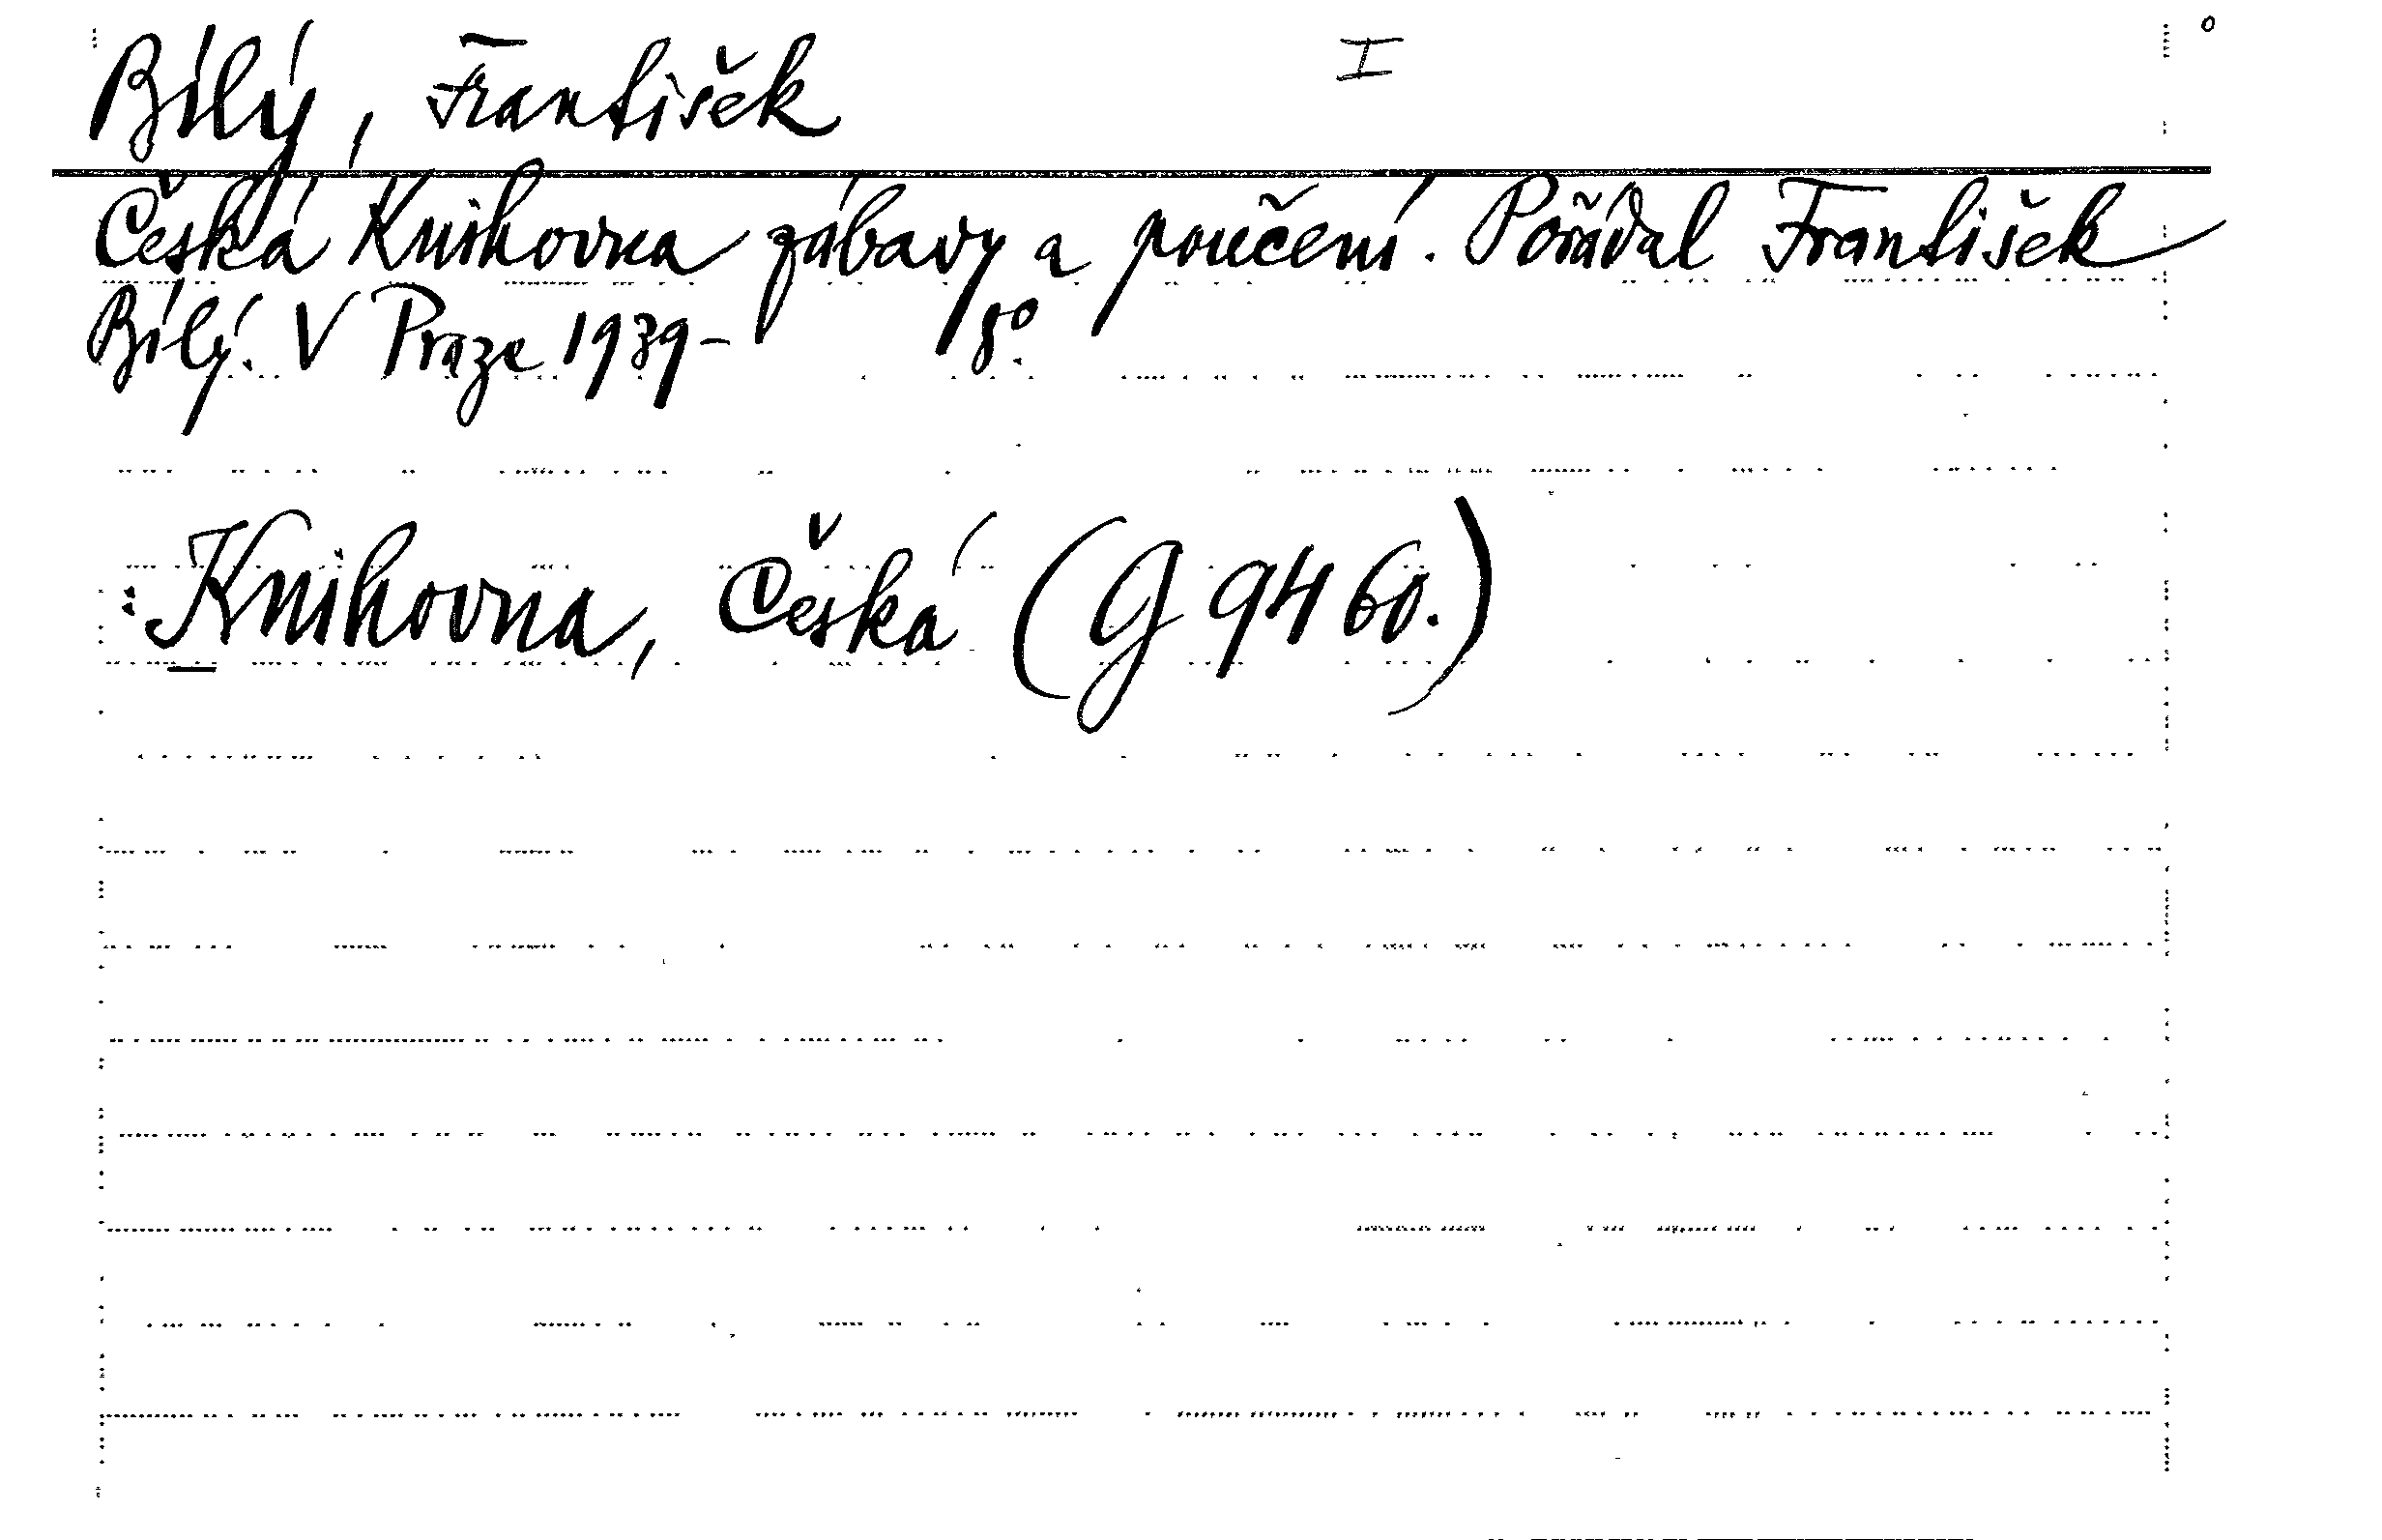 Bílý, František I
Česká Knihovna zábavy a poučení. Pořádal František
Bílý. V Praze 1939- 8°.
: Knihovna, Česká (G 9460.)